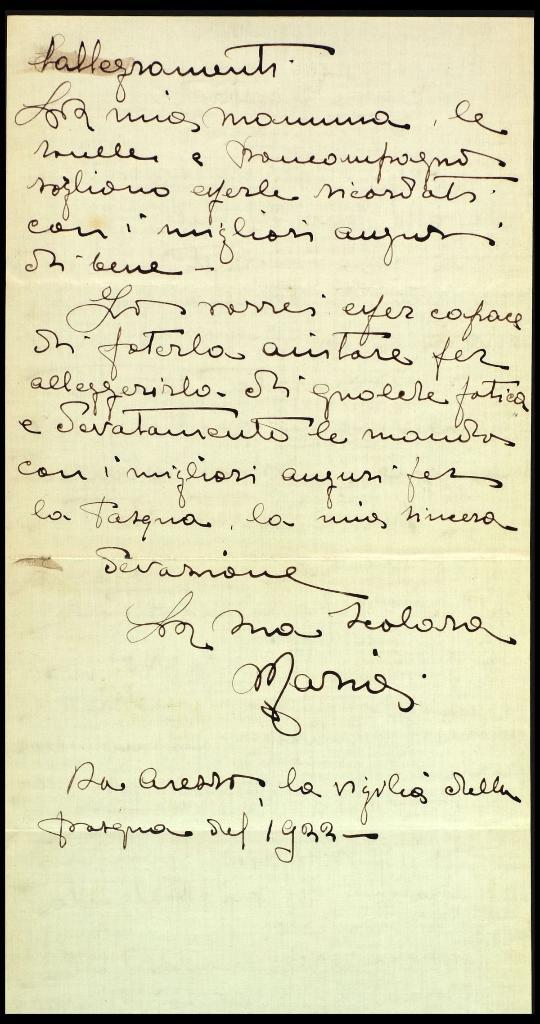 rallegramenti.
La mia mamma, le
sorelle e Boncompagno
vogliono esserle ricordati
con i migliori auguri
di bene —
Io vorrei esser capace
di poterla aiutare per
alleggerirla di qualche fatica
e devotamente le mando
con i migliori auguri per
la Pasqua, la mia sincera
devozione
La sua scolara
Maria
Da Arezzo, la vigilia della
pasqua del 1922 —